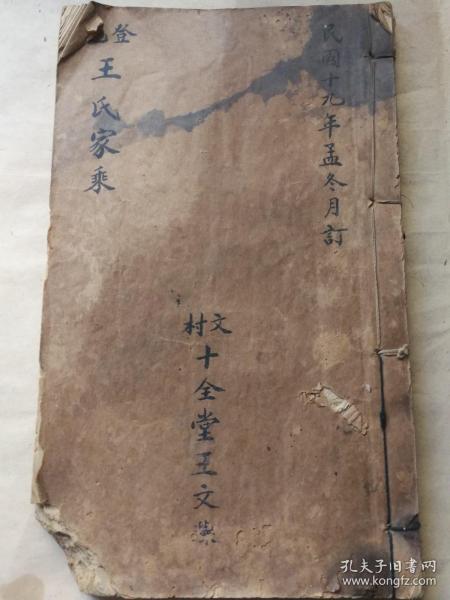 民國十九年孟冬月訂
登
王氏家乘
文村
十全堂王文
孔夫子旧书网
www.kongfz.com